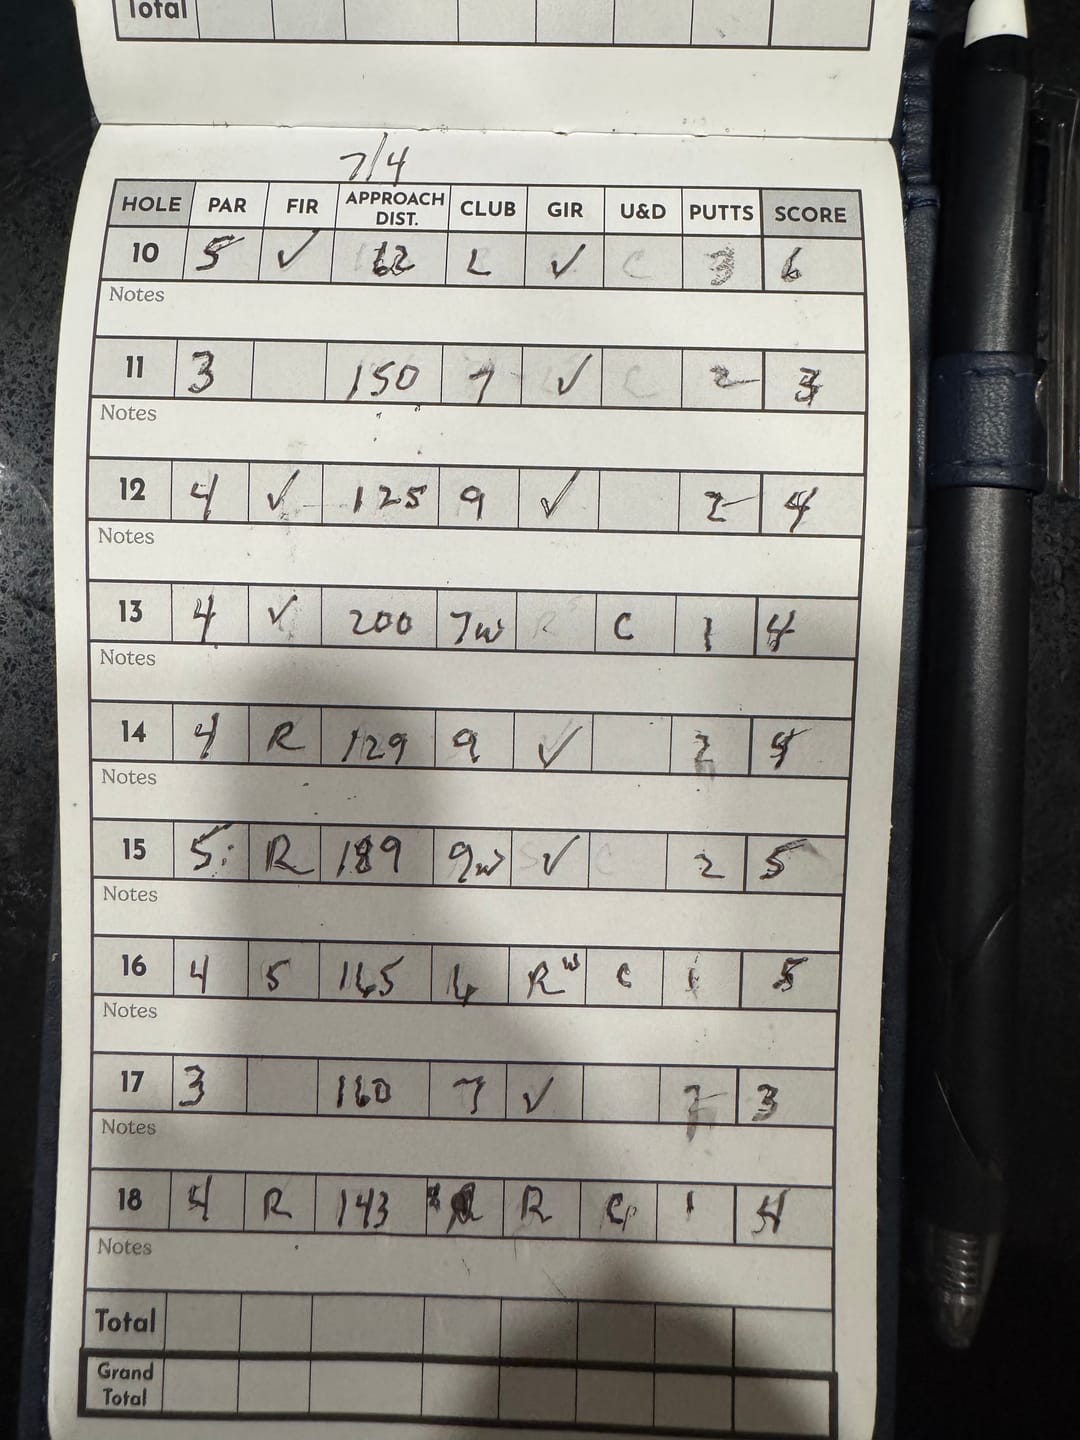 Total
7/4
HOLE PAR FIR APPROACH DIST. CLUB GIR U&D PUTTS SCORE
10 5 ✓ 62 L ✓ C 3 6
Notes
11 3 150 7 ✓ C 2 3
Notes
12 4 ✓ 125 9 ✓ 2 4
Notes
13 4 ✓ 200 7w R C 1 4
Notes
14 4 R 129 9 ✓ 2 4
Notes
15 5 R 189 9w ✓ C 2 5
Notes
16 4 5 165 6 R w C 1 5
Notes
17 3 160 7 ✓ 2 3
Notes
18 4 R 143 R C 1 4
Notes
Total
Grand Total